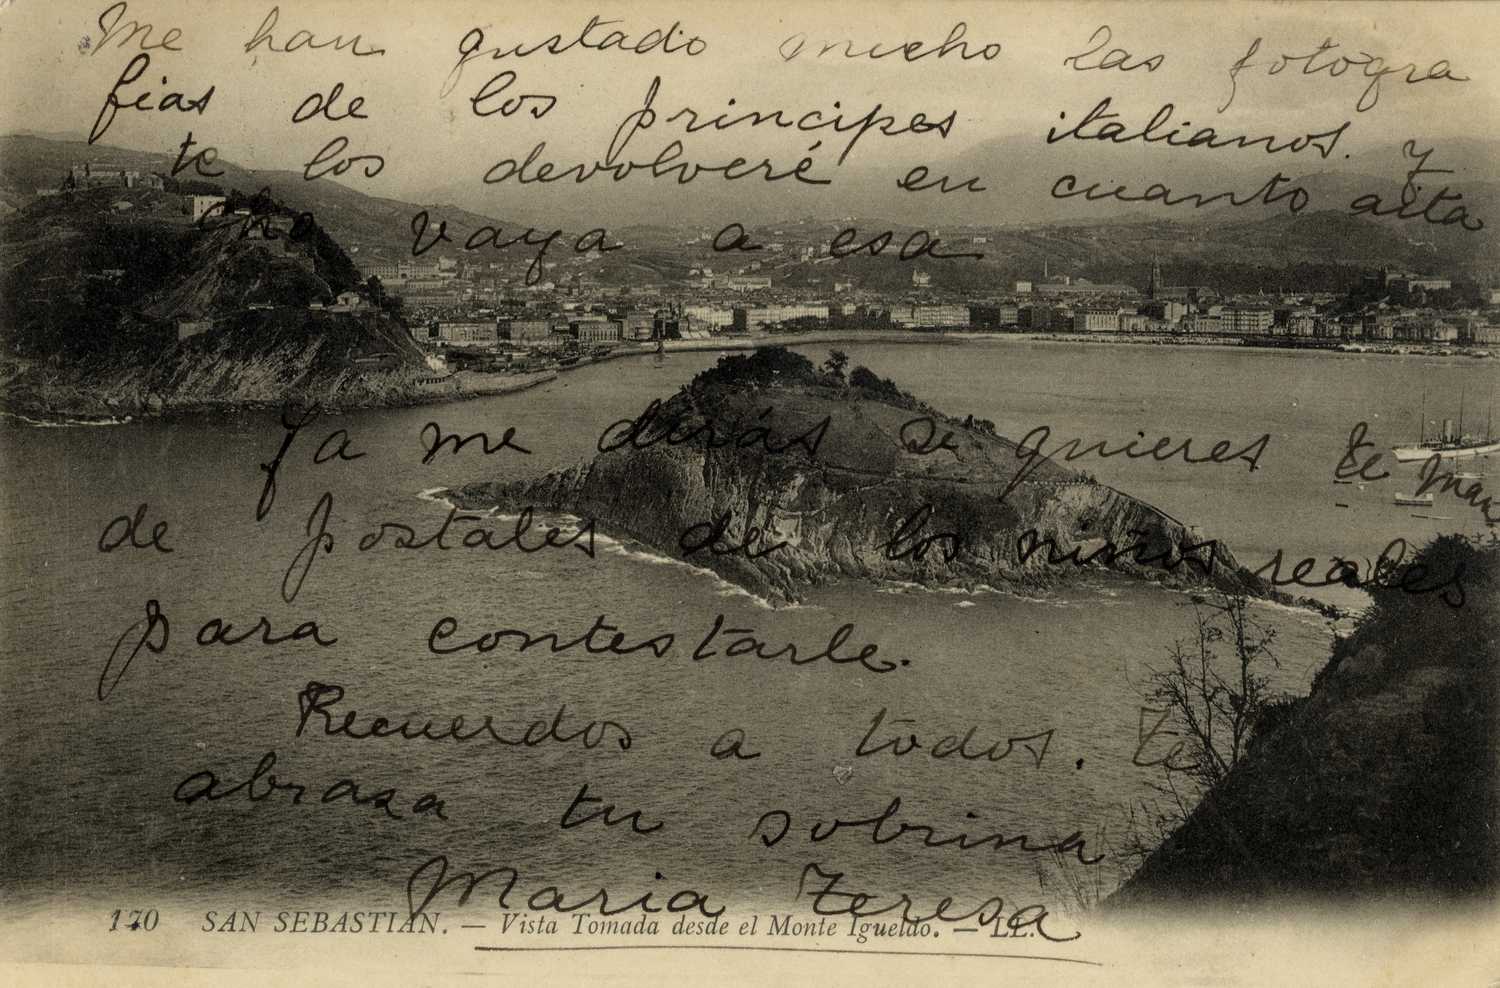 Me han gustado mucho las fotogra
fias de los principes italianos. y
te los devolveré en cuanto aita
cho vaya a esa
Ya me dirás si quieres te man
de postales de los niños reales
para contestarle.
Recuerdos a todos. te
abraza tu sobrina
Maria Teresa
170 SAN SEBASTIAN. — Vista Tomada desde el Monte Igueldo. — LL.